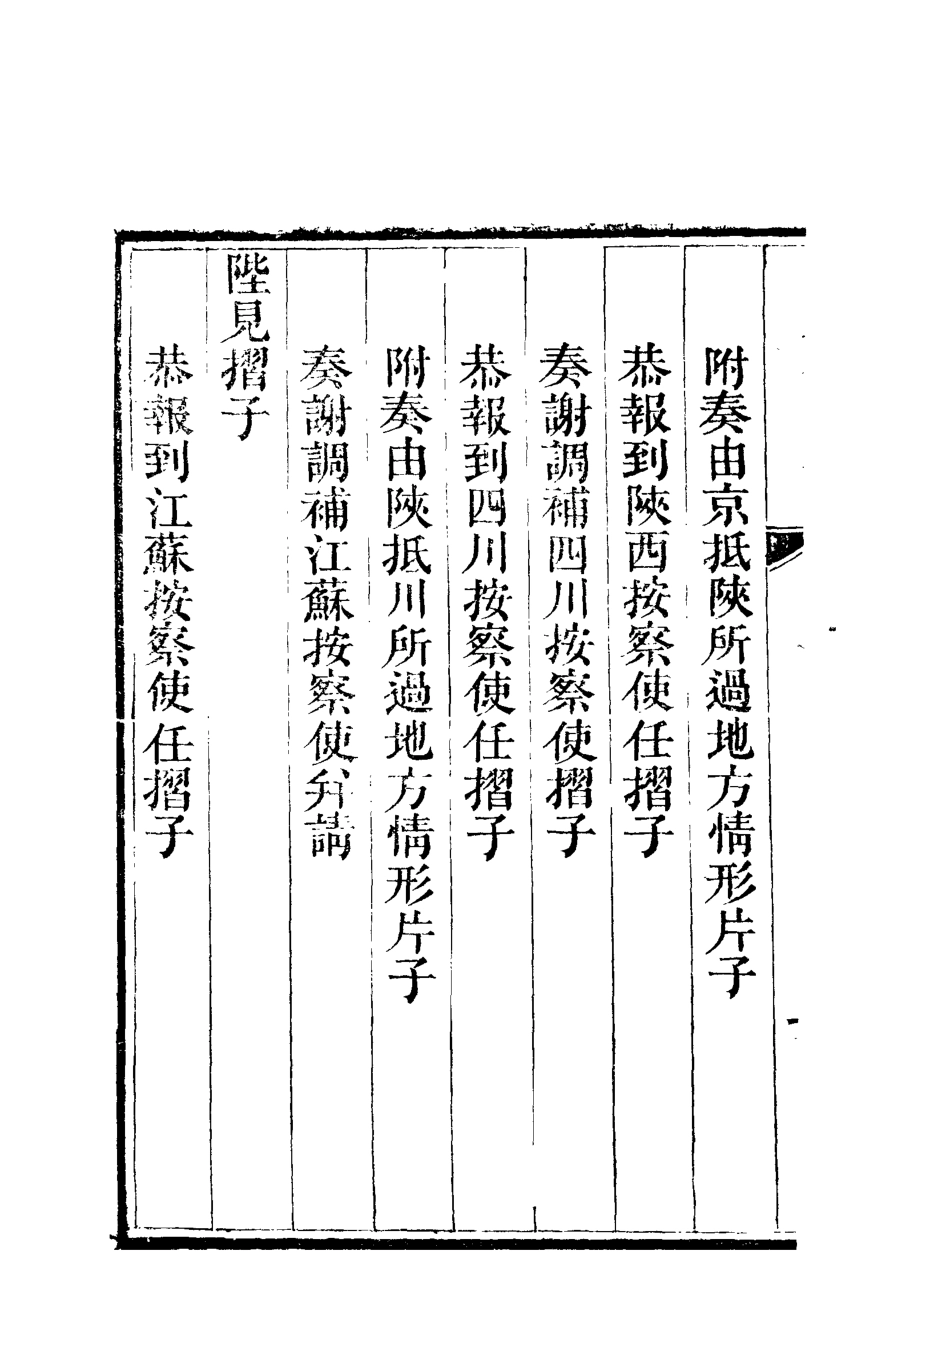 附奏由京抵陜所過地方情形片子
恭報到陜西按察使任摺子
奏謝調補四川按察使摺子
恭報到四川按察使任摺子
附奏由陜抵川所過地方情形片子
奏謝調補江蘇按察使并請
陛見摺子
恭報到江蘇按察使任摺子